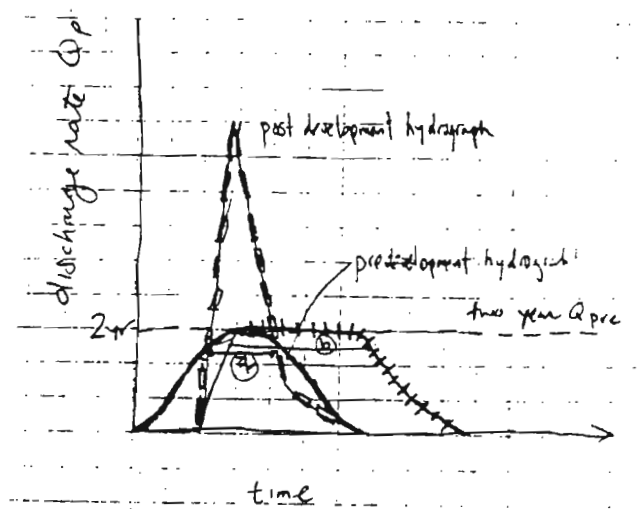 discharge rate Qp
post development hydrograph
predevelopment hydrograph
two year Q pre
2 yr
a
b
time